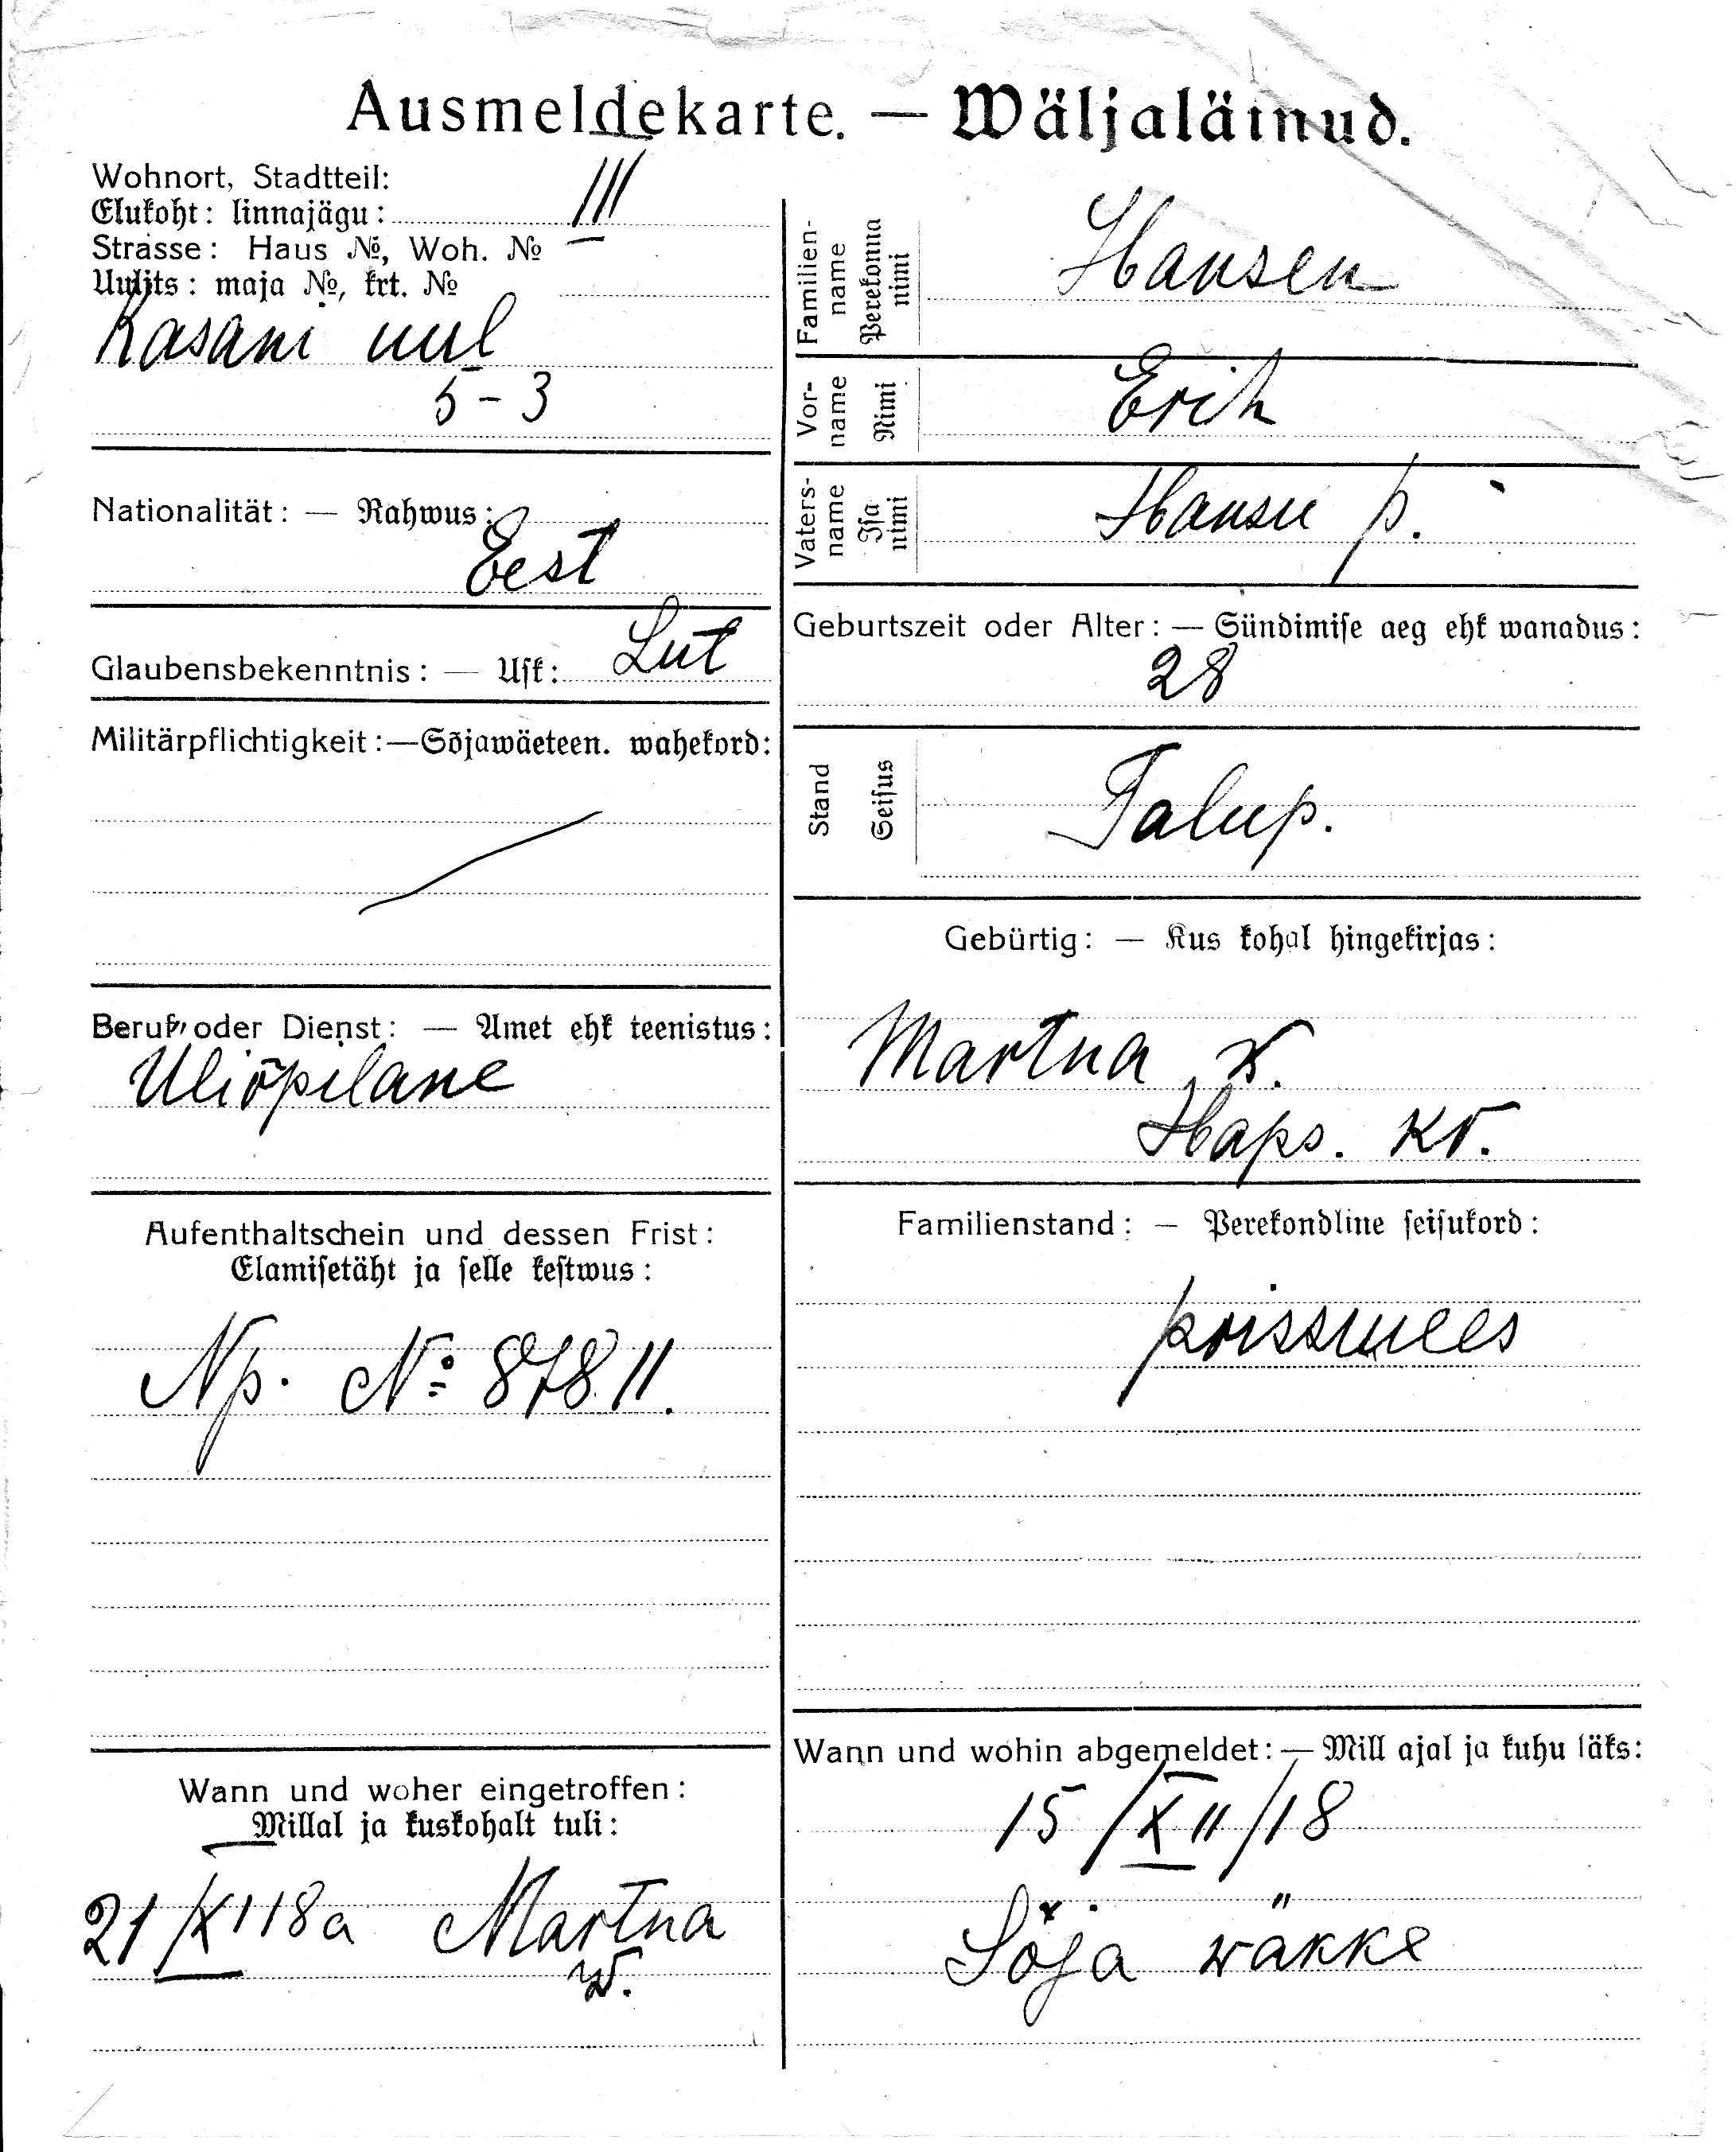 Ausmeldekarte. — Wäljaläinud.
Wohnort, Stadtteil:
Elukoht: linnajägu: III
Strasse: Haus №, Woh. №
Uulits: maja №, krt. №
Kasani uul
5-3
Nationalität: — Rahwus:
Eest
Glaubensbekenntnis: — Usk: Lut
Militärpflichtigkeit:—Sõjawäeteen. wahekord:
Beruf oder Dienst: — Amet ehk teenistus:
Uliõpilane
Aufenthaltschein und dessen Frist:
Elamisetäht ja selle kestwus:
Np. № 878.11.
Wann und woher eingetroffen:
Millal ja kuskohalt tuli:
21/XI 18a Martna
w.
Familien-
name
Perekonna
nimi
Hansen
Vor-
name
Nimi
Erih
Vaters-
name
Isa
nimi
Hansu p.
Geburtszeit oder Alter: — Sündimise aeg ehk wanadus:
28
Stand
Seisus
Talup.
Gebürtig: — Kus kohal hingekirjas:
Martna w.
Haps. kr.
Familienstand: — Perekondline seisukord:
poissmees
Wann und wohin abgemeldet: — Mill ajal ja kuhu läks:
15/XII/18
Sõja wäkke